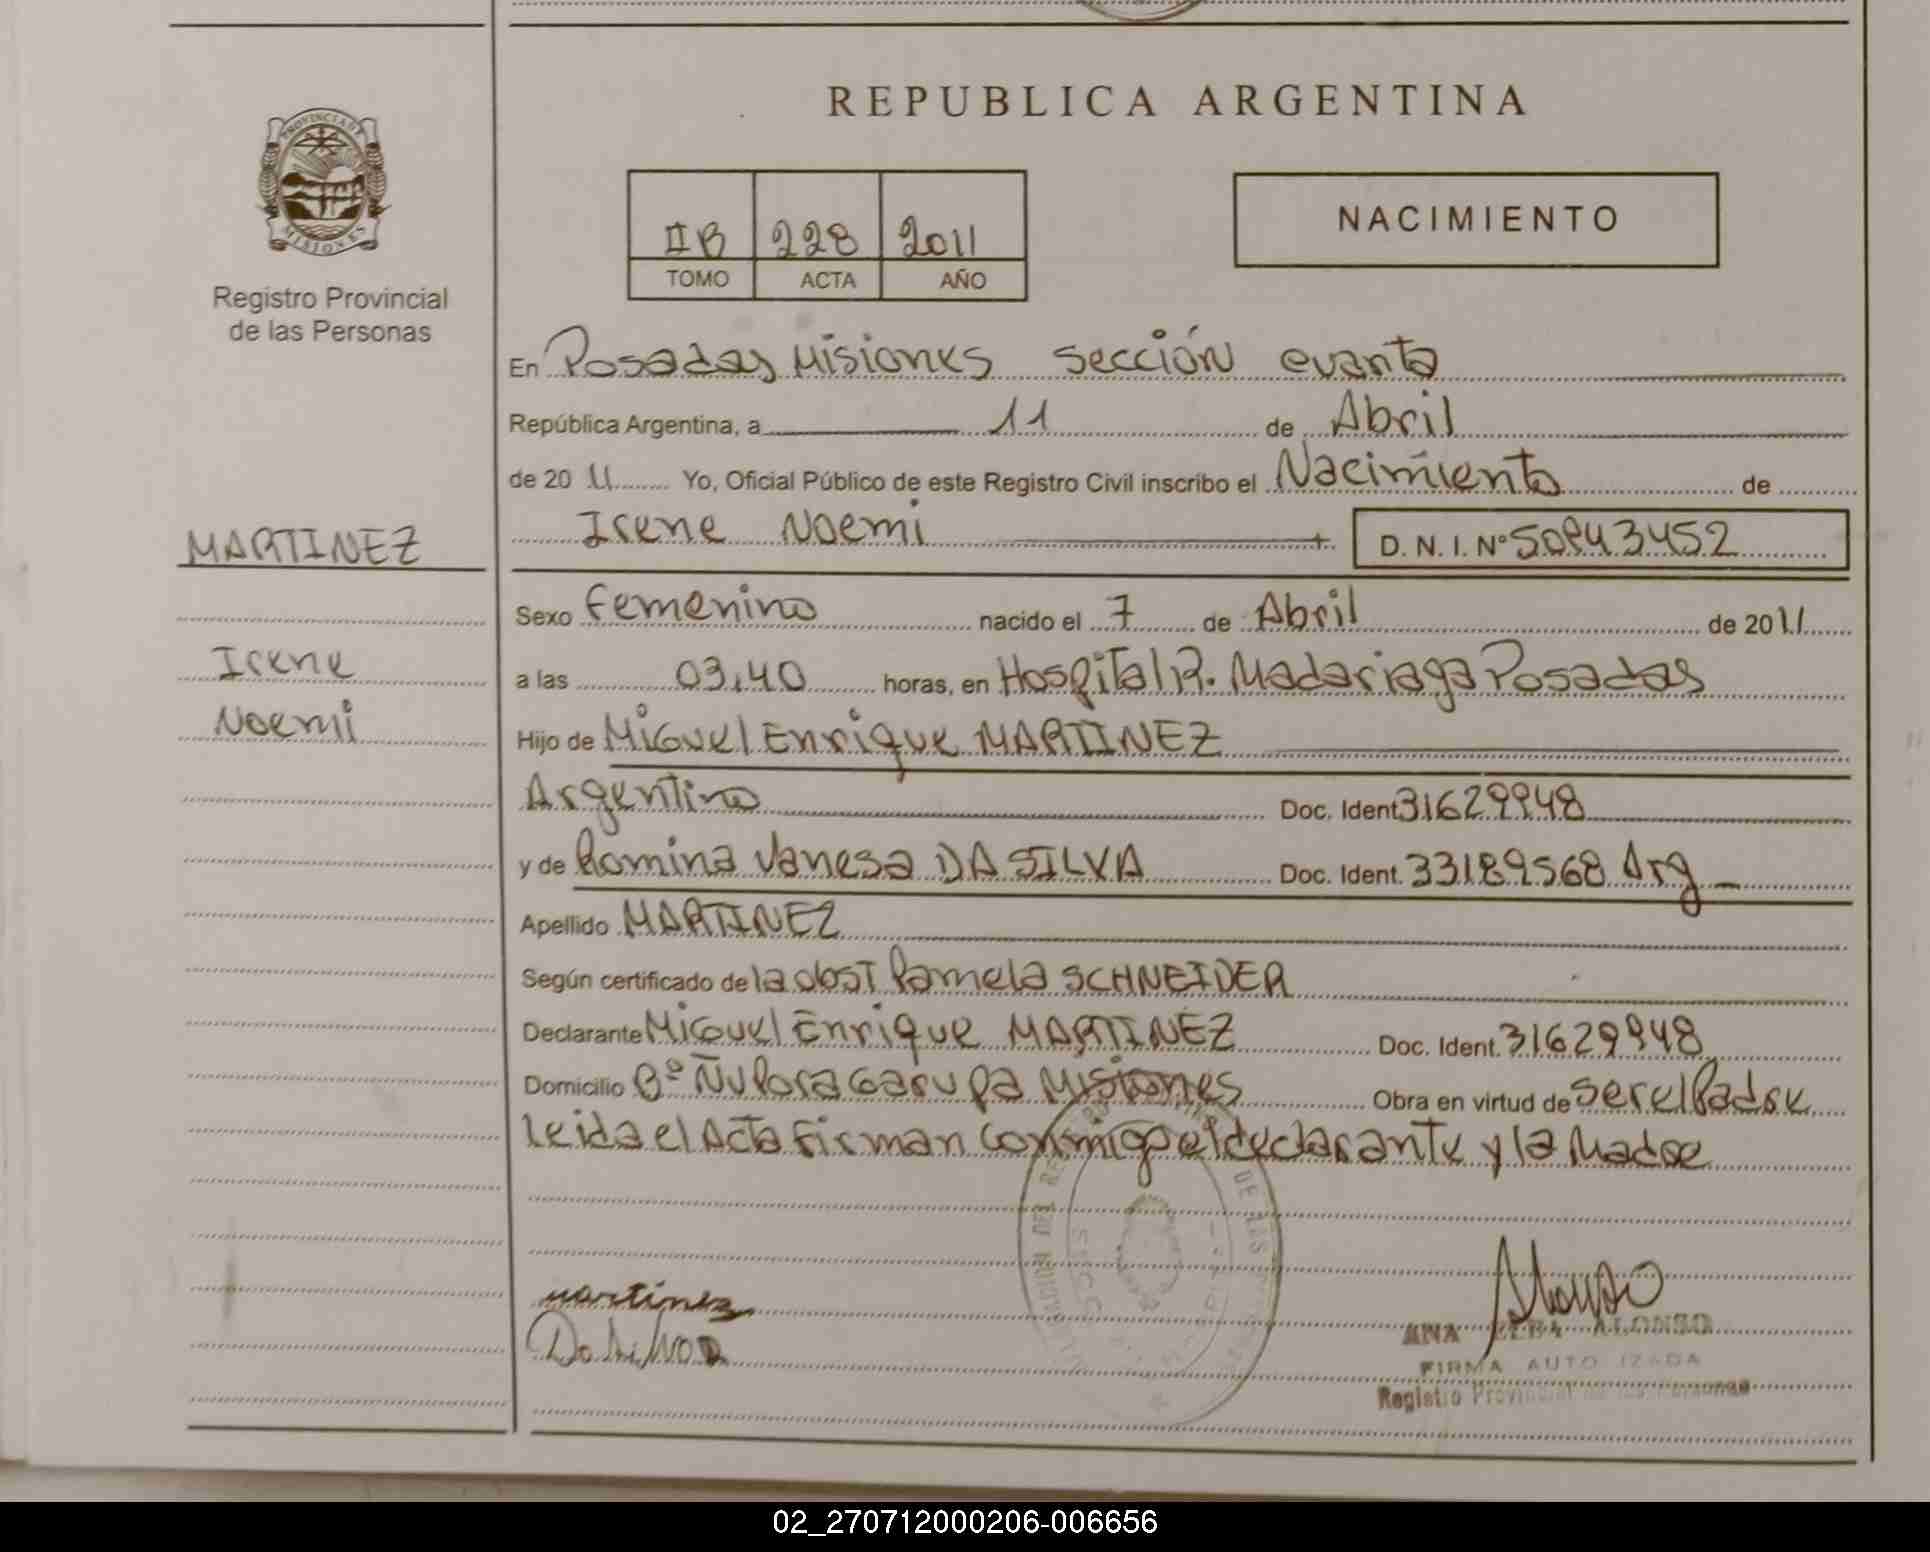 REPUBLICA ARGENTINA
PROVINCIA DE
MISIONES
Registro Provincial
de las Personas
IIB 228 2011
TOMO ACTA AÑO
NACIMIENTO
En Posadas Misiones sección cuarta
República Argentina, a 11 de Abril
de 2011 Yo, Oficial Público de este Registro Civil inscribo el Nacimiento de
MARTINEZ
Irene Noemi D.N.I.Nº 50843452
Sexo femenino nacido el 7 de Abril de 2011
Irene
a las 03,40 horas, en Hospital R. Madariaga Posadas
Noemi
Hijo de Miguel Enrique MARTINEZ
Argentino Doc. Ident 31629948
y de Romina Vanesa DA SILVA Doc. Ident. 33189568 Arg
Apellido MARTINEZ
Según certificado de la obst Pamela SCHNEIDER
Declarante Miguel Enrique MARTINEZ Doc. Ident. 31629948
Domicilio Bº Ñu Pora Garupa Misiones Obra en virtud de ser el Padre
leida el Acta firman conmigo el declarante y la Madre
martinez
Da Silva
ANA ELBA ALONSO
FIRMA AUTORIZADA
Registro Provincial de las Personas
02_270712000206-006656